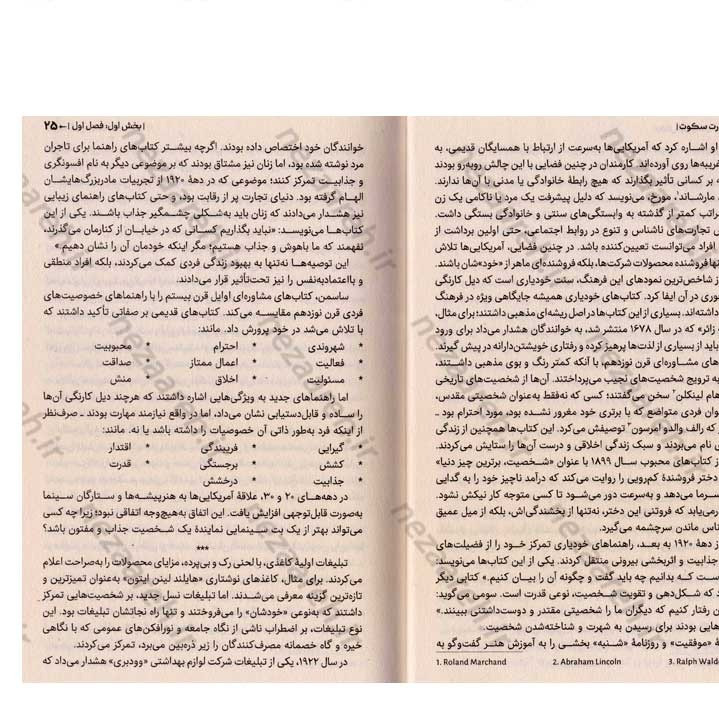 رت سکوت |
او اشاره کرد که آمریکایی‌ها به‌سرعت از ارتباط با همسایگان قدیمی، به
غریبه‌ها روی آورده‌اند. کارمندان در چنین فضایی با این چالش روبه‌رو بودند
ه بر کسانی تأثیر بگذارند که هیچ رابطهٔ خانوادگی یا مدنی با آن‌ها ندارند.
مارشاند¹، مورخ، می‌نویسد که دلیل پیشرفت یک مرد یا ناکامی یک زن
راتب کمتر از گذشته به وابستگی‌های سنتی و خانوادگی بستگی داشت.
ش تجارت‌های ناشناس و تنوع در روابط اجتماعی، حتی اولین برداشت از
افراد می‌توانست تعیین‌کننده باشد. در چنین فضایی، آمریکایی‌ها تلاش
نها فروشنده محصولات شرکت‌ها، بلکه فروشنده‌ای ماهر از «خود»شان باشند.
از شاخص‌ترین نمودهای این فرهنگ، سنت خودیاری است که دیل کارنگی
وری در آن ایفا کرد. کتاب‌های خودیاری همیشه جایگاهی ویژه در فرهنگ
داشته‌اند. بسیاری از این کتاب‌ها در اصل ریشه‌ای مذهبی داشتند؛ برای مثال،
زائر» که در سال ۱۶۷۸ منتشر شد، به خوانندگان هشدار می‌داد برای ورود
باید از بسیاری از لذت‌ها پرهیز کرده و رفتاری خویشتن‌دارانه در پیش گیرند.
های مشاوره‌ای قرن نوزدهم با آنکه کمتر رنگ و بوی مذهبی داشتند،
به ترویج شخصیت‌های نجیب می‌پرداختند. آن‌ها از شخصیت‌های تاریخی
هام لینکلن² سخن می‌گفتند؛ کسی که نه‌فقط به‌عنوان شخصیتی مقدس،
وان فردی متواضع که با برتری خود مغرور نشده بود، مورد احترام بود ـ
که رالف والدو امرسون³ توصیفش می‌کرد. این کتاب‌ها همچنین از زندگی
ی نام می‌بردند و سبک زندگی اخلاقی و درست آن‌ها را ستایش می‌کردند.
ز کتاب‌های محبوب سال ۱۸۹۹ با عنوان «شخصیت، برترین چیز دنیا»
دختر فروشندهٔ کم‌رویی را روایت می‌کند که درآمد ناچیز خود را به گدایی
سرما می‌دهد و به‌سرعت دور می‌شود تا کسی متوجه کار نیکش نشود.
رمی‌یابد که فروتنی این دختر، نه‌تنها از بخشندگی‌اش، بلکه از میل عمیق
ناس ماندن سرچشمه می‌گیرد.
ز دههٔ ۱۹۲۰ به بعد، راهنماهای خودیاری تمرکز خود را از فضیلت‌های
جذابیت و اثربخشی بیرونی منتقل کردند. یکی از این کتاب‌ها می‌نویسد:
ست که بدانیم چه باید گفت و چگونه آن را بیان کنیم.» کتابی دیگر
د که شکل‌دهی و تقویت شخصیت، نوعی قدرت است. سومی می‌گوید:
ن رفتار کنیم که دیگران ما را شخصیتی مقتدر و دوست‌داشتنی ببینند.»
هایی بودند برای رسیدن به شهرت و شناخته‌شدن شخصیت.
هٔ «موفقیت» و روزنامهٔ «شنبه» بخشی را به آموزش هنر گفت‌وگو به
1. Roland Marchand 2. Abraham Lincoln 3. Ralph Wald
| بخش اول: فصل اول | ← ۲۵
خوانندگان خود اختصاص داده بودند. اگرچه بیشتر کتاب‌های راهنما برای تاجران
مرد نوشته شده بود، اما زنان نیز مشتاق بودند که بر موضوعی دیگر به نام افسونگری
و جذابیت تمرکز کنند؛ موضوعی که در دههٔ ۱۹۲۰ از تجربیات مادربزرگ‌هایشان
الهام گرفته بود. دنیای تجارت پر از رقابت بود، و حتی کتاب‌های راهنمای زیبایی
نیز هشدار می‌دادند که زنان باید به‌شکلی چشمگیر جذاب باشند. یکی از این
کتاب‌ها می‌نویسد: «نباید بگذاریم کسانی که در خیابان از کنارمان می‌گذرند،
نفهمند که ما باهوش و جذاب هستیم؛ مگر اینکه خودمان آن را نشان دهیم.»
این توصیه‌ها نه‌تنها به بهبود زندگی فردی کمک می‌کردند، بلکه افراد منطقی
و بااعتمادبه‌نفس را نیز تحت‌تأثیر قرار می‌دادند.
ساسمن، کتاب‌های مشاوره‌ای اوایل قرن بیستم را با راهنماهای خصوصیت‌های
فردی قرن نوزدهم مقایسه می‌کند. کتاب‌های قدیمی بر صفاتی تأکید داشتند که
با تلاش می‌شد در خود پرورش داد. مانند:
* شهروندی * احترام * محبوبیت
* فعالیت * اعمال ممتاز * صداقت
* مسئولیت * اخلاق * منش
اما راهنماهای جدید به ویژگی‌هایی اشاره داشتند که هرچند دیل کارنگی آن‌ها
را ساده و قابل‌دستیابی نشان می‌داد، اما در واقع نیازمند مهارت بودند ـ صرف‌نظر
از اینکه فرد به‌طور ذاتی آن خصوصیات را داشته باشد یا نه. مانند:
* گیرایی * فریبندگی * اقتدار
* کشش * برجستگی * قدرت
* جذابیت * درخشش
در دهه‌های ۲۰ و ۳۰، علاقهٔ آمریکایی‌ها به هنرپیشه‌ها و ستارگان سینما
به‌صورت قابل‌توجهی افزایش یافت. این اتفاق به‌هیچ‌وجه اتفاقی نبود؛ زیرا چه کسی
می‌تواند بهتر از یک بت سینمایی نمایندهٔ یک شخصیت جذاب و مفتون باشد؟
***
تبلیغات اولیهٔ کاغذی، با لحنی رک و بی‌پرده، مزایای محصولات را به‌صراحت اعلام
می‌کردند. برای مثال، کاغذهای نوشتاری «هایلند لینن ایتون» به‌عنوان تمیزترین و
تازه‌ترین گزینه معرفی می‌شدند. اما تبلیغات نسل جدید، بر شخصیت‌هایی تمرکز
داشتند که به‌نوعی «خودشان» را می‌فروختند و تنها راه نجاتشان تبلیغات بود. این
نوع تبلیغات، بر اضطراب ناشی از نگاه جامعه و نورافکن‌های عمومی که با نگاهی
خیره و گاه خصمانه مصرف‌کنندگان را زیر ذره‌بین می‌برد، تمرکز می‌کردند.
در سال ۱۹۲۲، یکی از تبلیغات شرکت لوازم بهداشتی «وودبری» هشدار می‌داد که